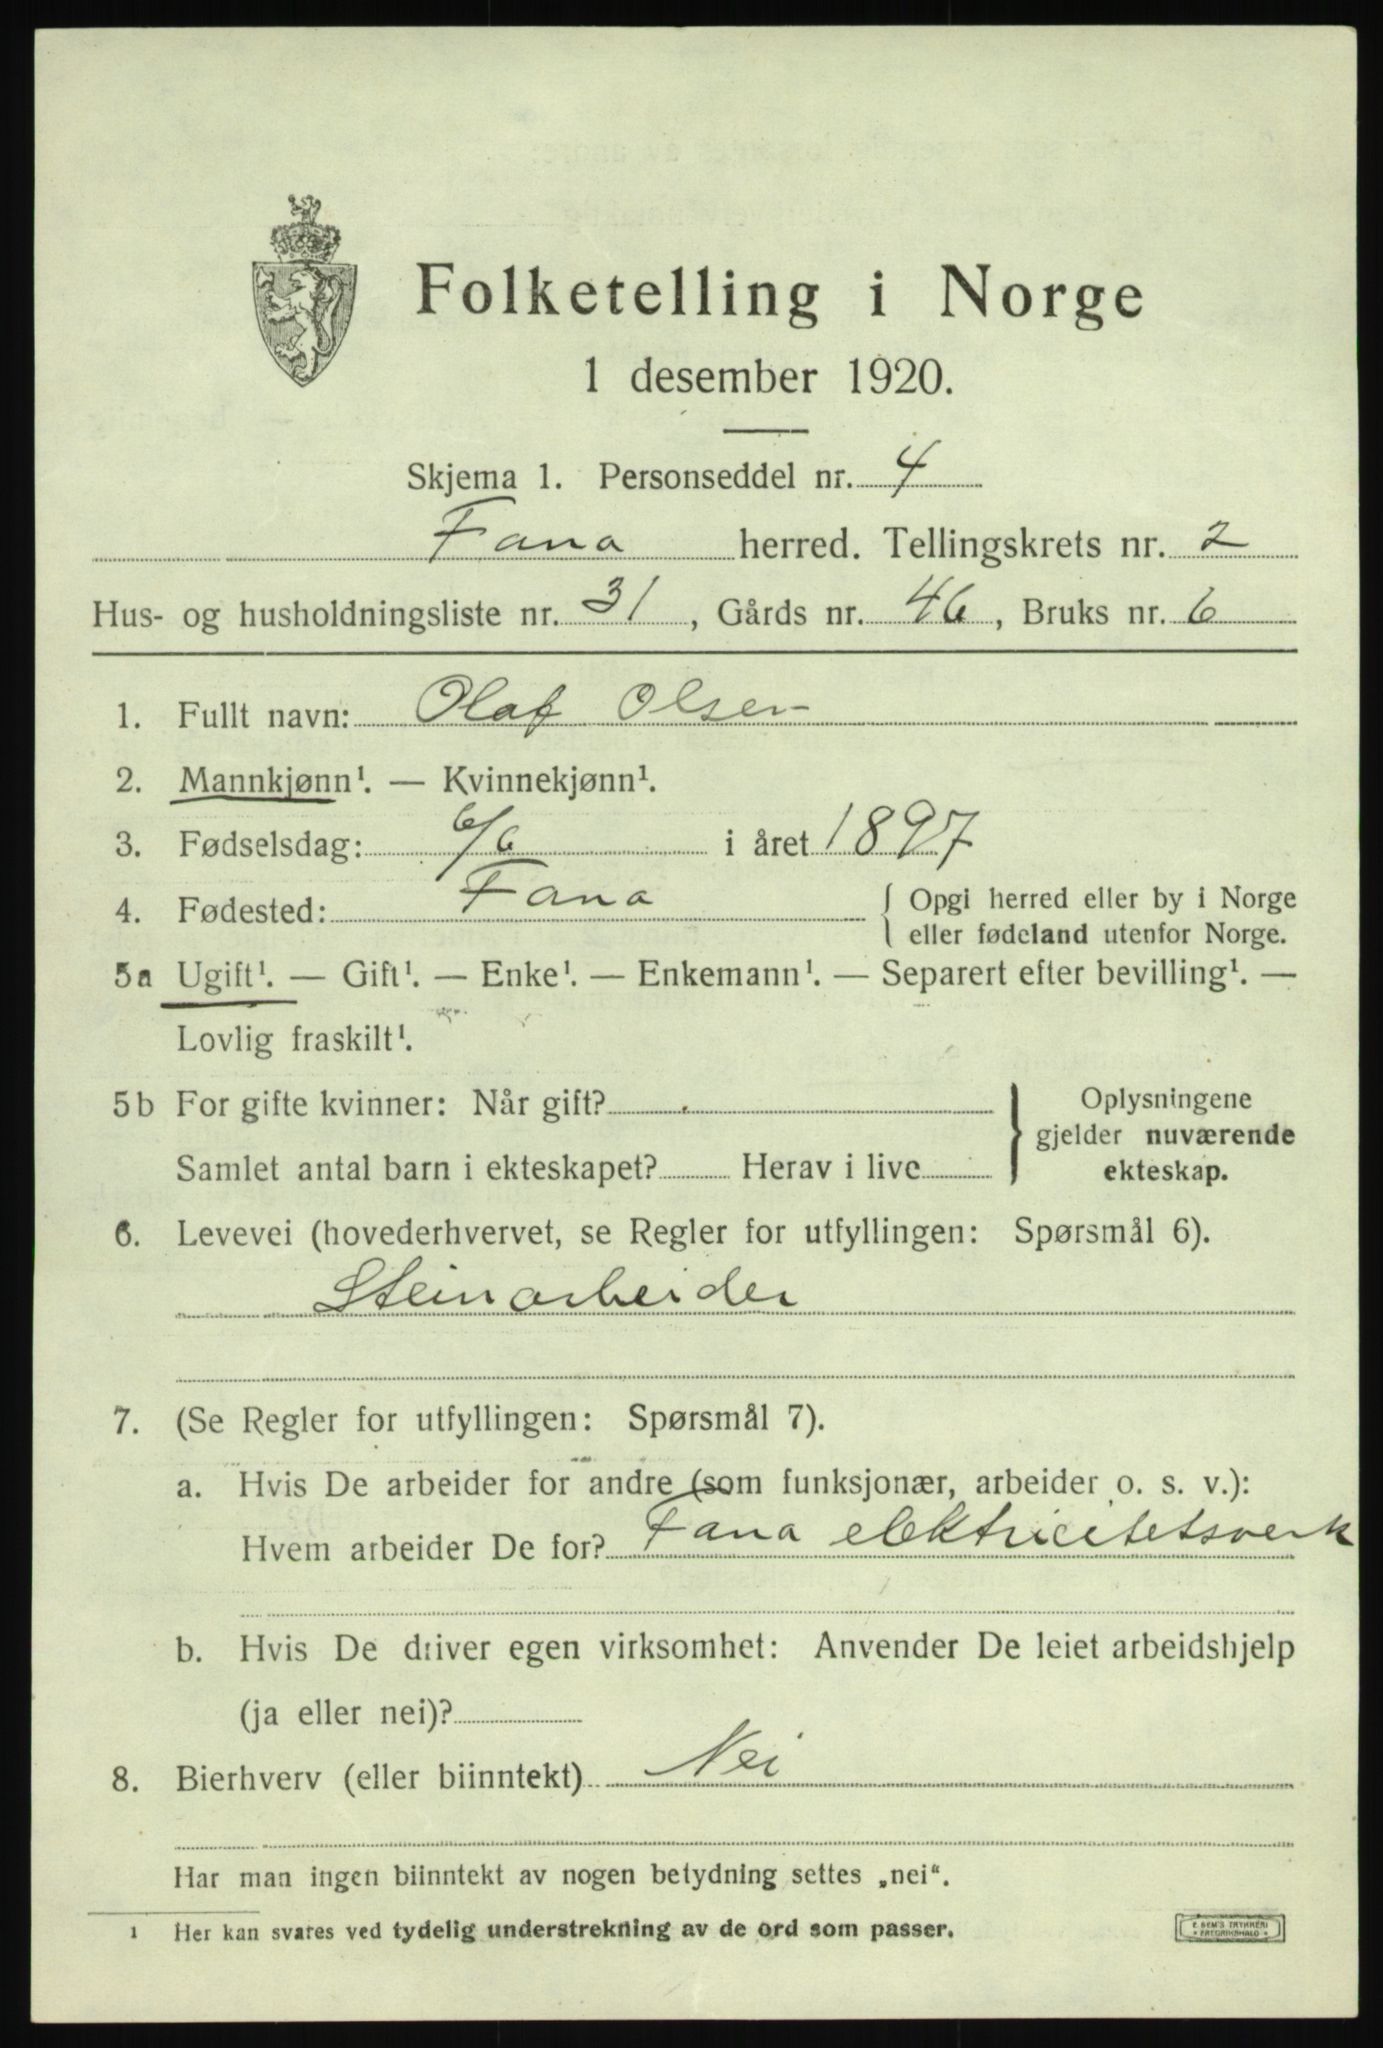 Folketelling i Norge
1 desember 1920.
Skjema 1. Personseddel nr. 4
Fana herred. Tellingskrets nr. 2
Hus- og husholdningsliste nr. 31, Gårds nr. 46, Bruks nr. 6
1. Fullt navn: Olaf Olsen
2. Mannkjønn¹. — Kvinnekjønn¹.
3. Fødselsdag: 6/6 i året 1897
4. Fødested: Fana { Opgi herred eller by i Norge
eller fødeland utenfor Norge.
5a Ugift¹. — Gift¹. — Enke¹. — Enkemann¹. — Separert efter bevilling¹. —
Lovlig fraskilt¹.
5b For gifte kvinner: Når gift?
Samlet antal barn i ekteskapet? Herav i live
} Oplysningene
gjelder nuværende
ekteskap.
6. Levevei (hovederhvervet, se Regler for utfyllingen: Spørsmål 6).
Steinarbeider
7. (Se Regler for utfyllingen: Spørsmål 7).
a. Hvis De arbeider for andre (som funksjonær, arbeider o. s. v.):
Hvem arbeider De for? Fana elektricitetsverk
b. Hvis De driver egen virksomhet: Anvender De leiet arbeidshjelp
(ja eller nei)?
8. Bierhverv (eller biinntekt) Nei
Har man ingen biinntekt av nogen betydning settes „nei“.
¹ Her kan svares ved tydelig understrekning av de ord som passer.
E. SEM'S TRYKKERI
• FREDRIKSHALD •